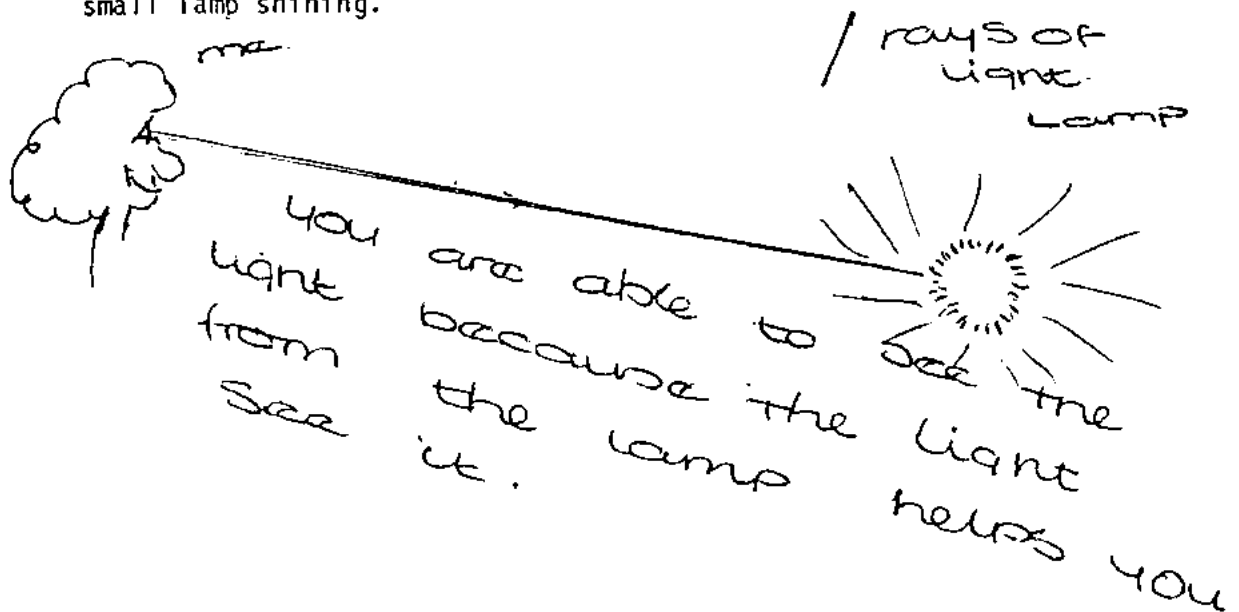 small lamp shining.
me.
/ rays of
light.
Lamp
you are able to see the
light because the light
from the lamp helps you
see it.